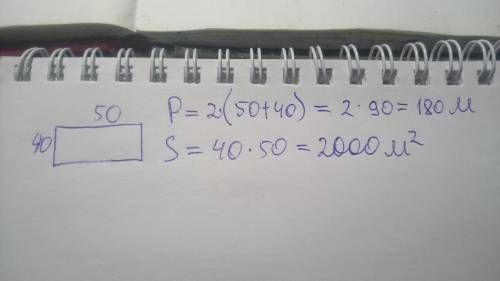 50
P = 2·(50+40) = 2·90 = 180 м
40
S = 40·50 = 2000 м²